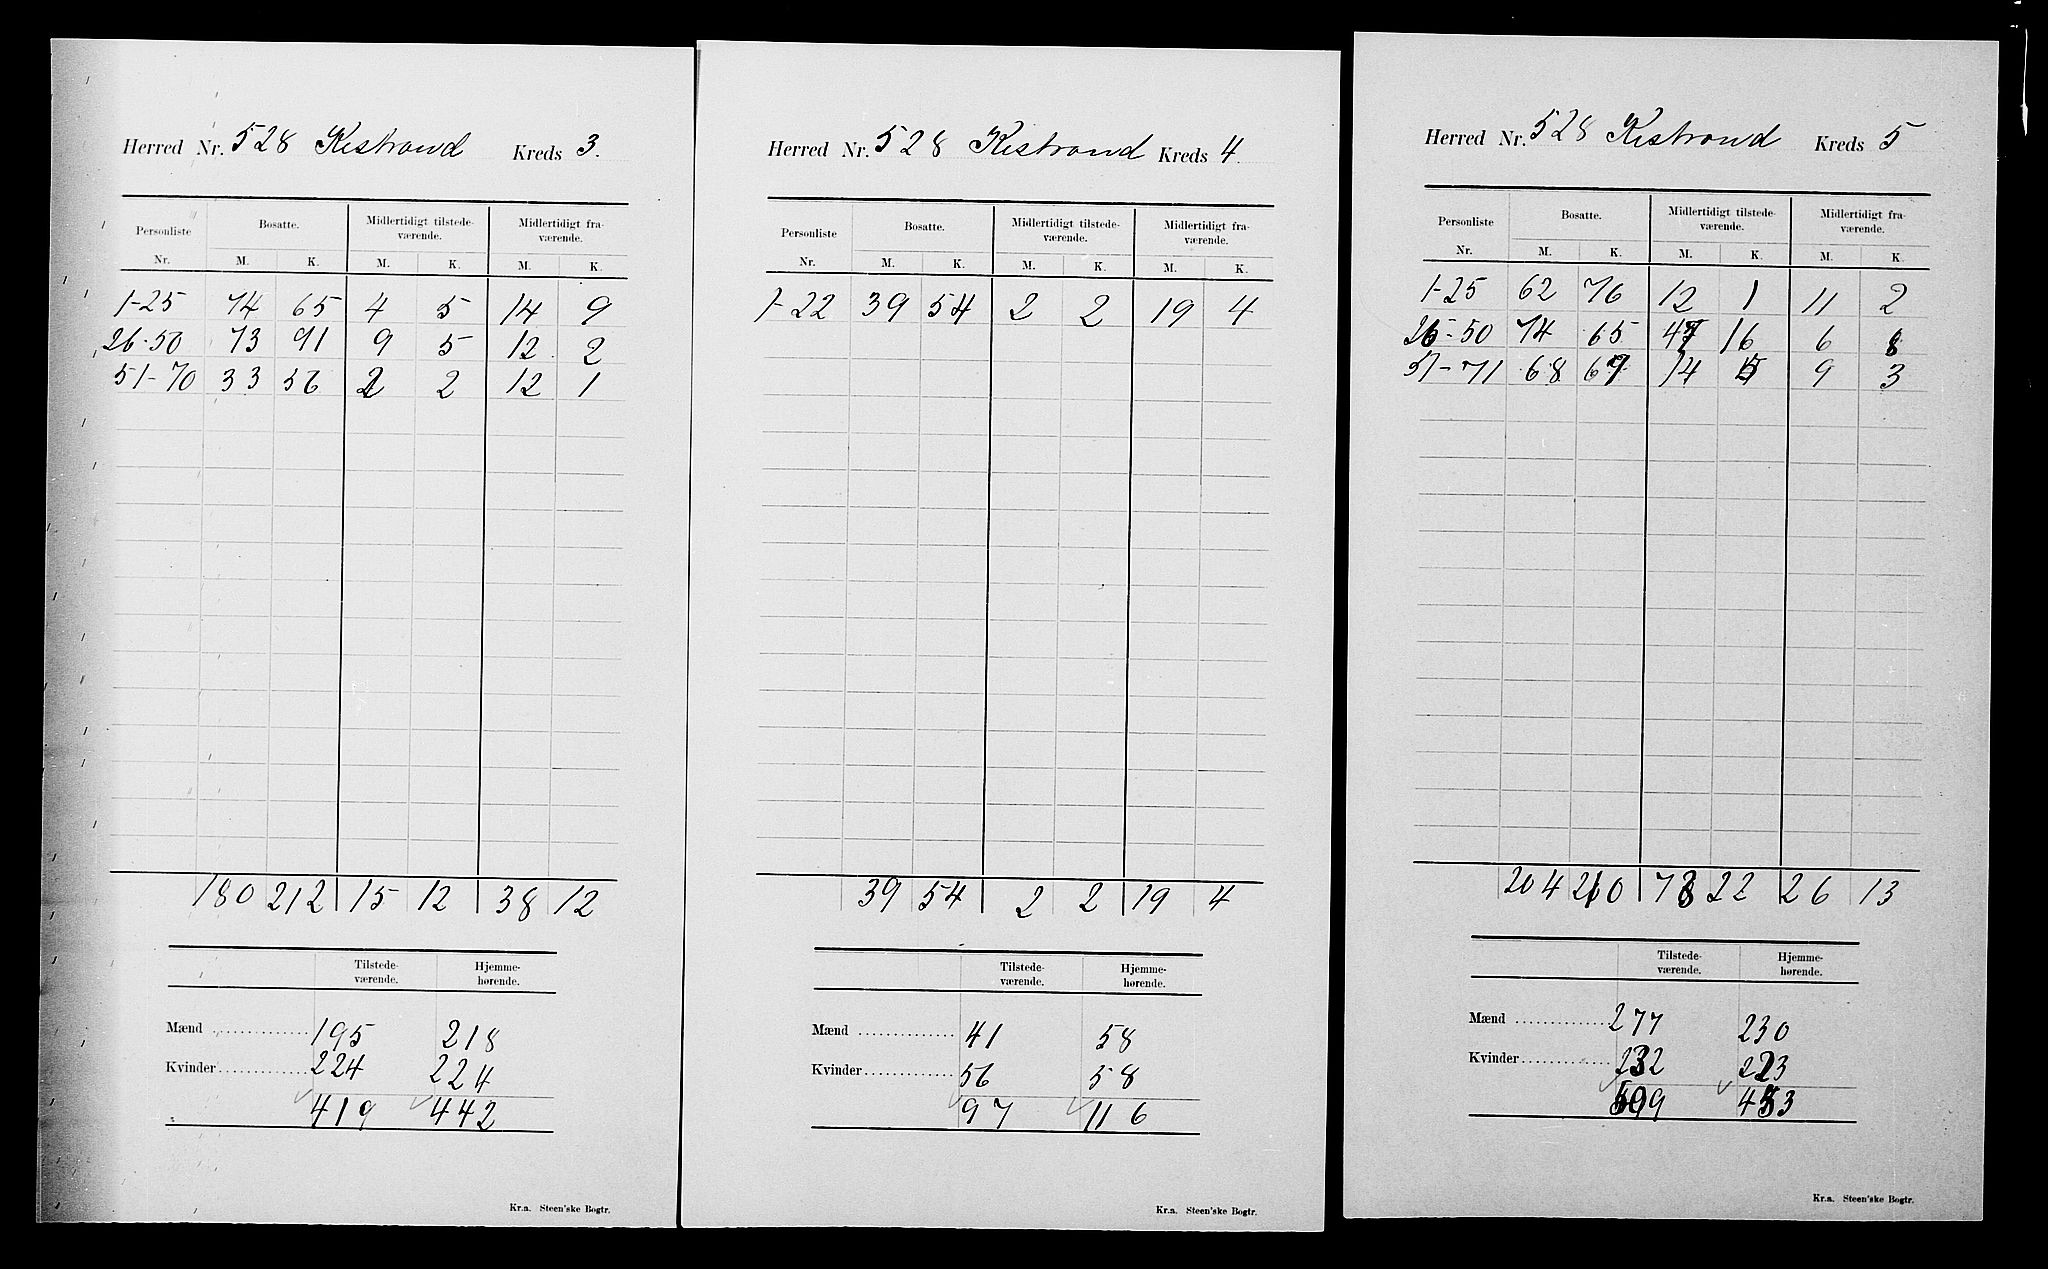 Herred Nr. 528 Kistrand Kreds 3.
Personliste Bosatte. Midlertidigt tilstede-værende. Midlertidigt fra-værende.
Nr. M. K. M. K. M. K.
1-25 74 65 4 5 14 9
26-50 73 91 9 5 12 2
51-70 33 56 2 2 12 1
180 212 15 12 38 12
Tilstede-værende. Hjemme-hørende.
Mænd 195 218
Kvinder 224 224
419 442
Kr.a. Steen'ske Bogtr.
Herred Nr. 528 Kistrand Kreds 4.
Personliste Bosatte. Midlertidigt tilstede-værende. Midlertidigt fra-værende.
Nr. M. K. M. K. M. K.
1-22 39 54 2 2 19 4
39 54 2 2 19 4
Tilstede-værende. Hjemme-hørende.
Mænd 41 58
Kvinder 56 58
97 116
Kr.a. Steen'ske Bogtr.
Herred Nr. 528 Kistrand Kreds 5
Personliste Bosatte. Midlertidigt tilstede-værende. Midlertidigt fra-værende.
Nr. M. K. M. K. M. K.
1-25 62 76 12 1 11 2
26-50 74 65 47 16 6 8
51-71 68 69 14 5 9 3
204 210 73 22 26 13
Tilstede-værende. Hjemme-hørende.
Mænd 277 230
Kvinder 232 223
509 453
Kr.a. Steen'ske Bogtr.